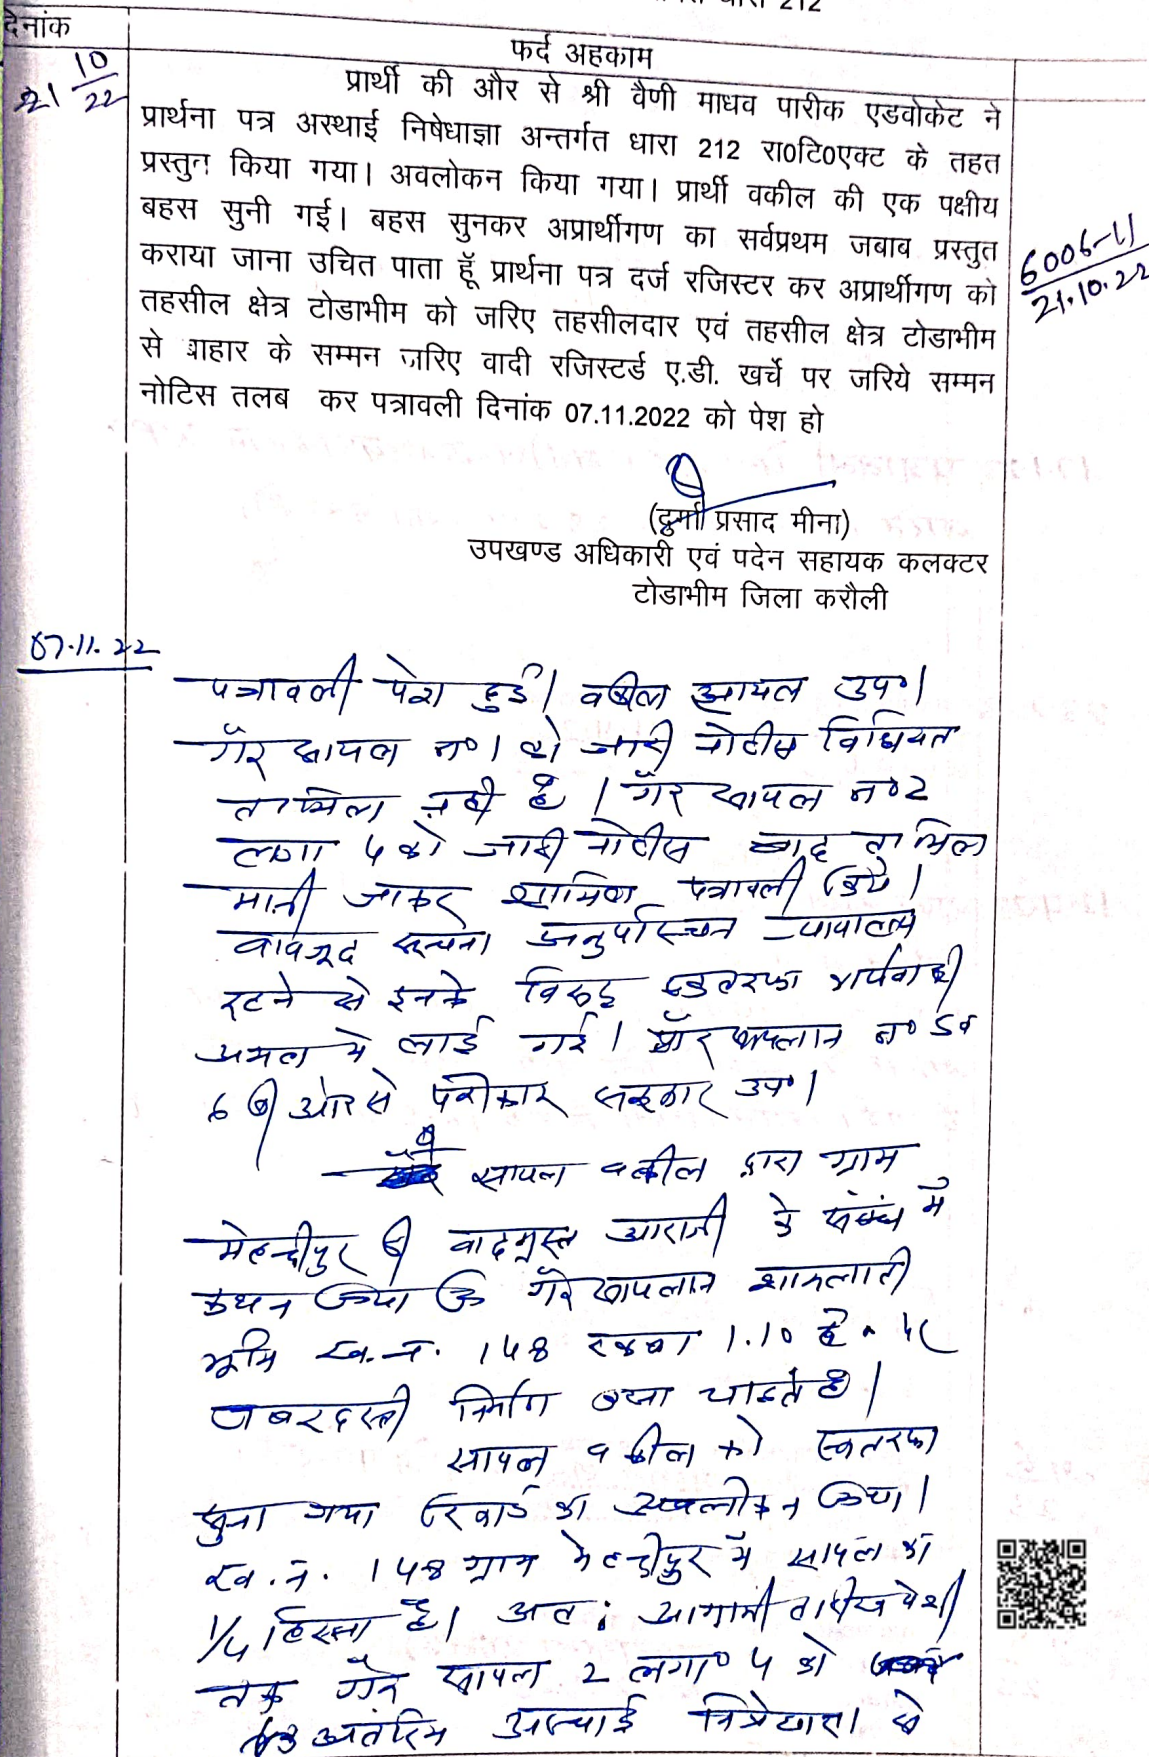 धारा 212
देनांक
फर्द अहकाम
21 10/22
प्रार्थी की और से श्री वैणी माधव पारीक एडवोकेट ने
प्रार्थना पत्र अस्थाई निषेधाज्ञा अन्तर्गत धारा 212 रा0टि0एक्ट के तहत
प्रस्तुत किया गया। अवलोकन किया गया। प्रार्थी वकील की एक पक्षीय
बहस सुनी गई। बहस सुनकर अप्रार्थीगण का सर्वप्रथम जबाब प्रस्तुत
कराया जाना उचित पाता हूॅ प्रार्थना पत्र दर्ज रजिस्टर कर अप्रार्थीगण को
तहसील क्षेत्र टोडाभीम को जरिए तहसीलदार एवं तहसील क्षेत्र टोडाभीम
से बाहार के सम्मन जरिए वादी रजिस्टर्ड ए.डी. खर्चे पर जरिये सम्मन
नोटिस तलब कर पत्रावली दिनांक 07.11.2022 को पेश हो
6006-11
21.10.22
(दुर्गा प्रसाद मीना)
उपखण्ड अधिकारी एवं पदेन सहायक कलक्टर
टोडाभीम जिला करौली
07.11.22
पत्रावली पेश हुई। वकील सायल उप०।
गैर सायल न० 1 को जारी नोटीस विधिवत
तामिल नही है। गैर सायल न० 2
लगा 4 को जारी नोटीस बाद तामिल
मानी जाकर शामिल पत्रावली किये।
वावजूद सूचना अनुपस्थित न्यायालय
रहने से इनके विरुद्ध इकतरफा कार्यवाही
अमल मे लाई गई। गैर सायलान न० 5 व
6 की ओर से पैरोकार सरकार उप०।
सायल वकील द्वारा ग्राम
मेहन्दीपुर की वादग्रस्त आराजी के संबंध मे
कथन किया कि गैर सायलान शामलाती
भूमि ख.न. 148 रकबा 1.10 है० पर
जबरदस्ती निर्माण करना चाहते है।
सायल वकील को इकतरफा
सुना गया रिकार्ड का अवलोकन किया।
ख.न. 148 ग्राम मेहन्दीपुर मे सायल का
1/4 हिस्सा है। अतः आगामी तारीख पेशी
तक गैर सायल 2 लगा० 4 को
अंतरिम अस्थाई निषेधाज्ञा से